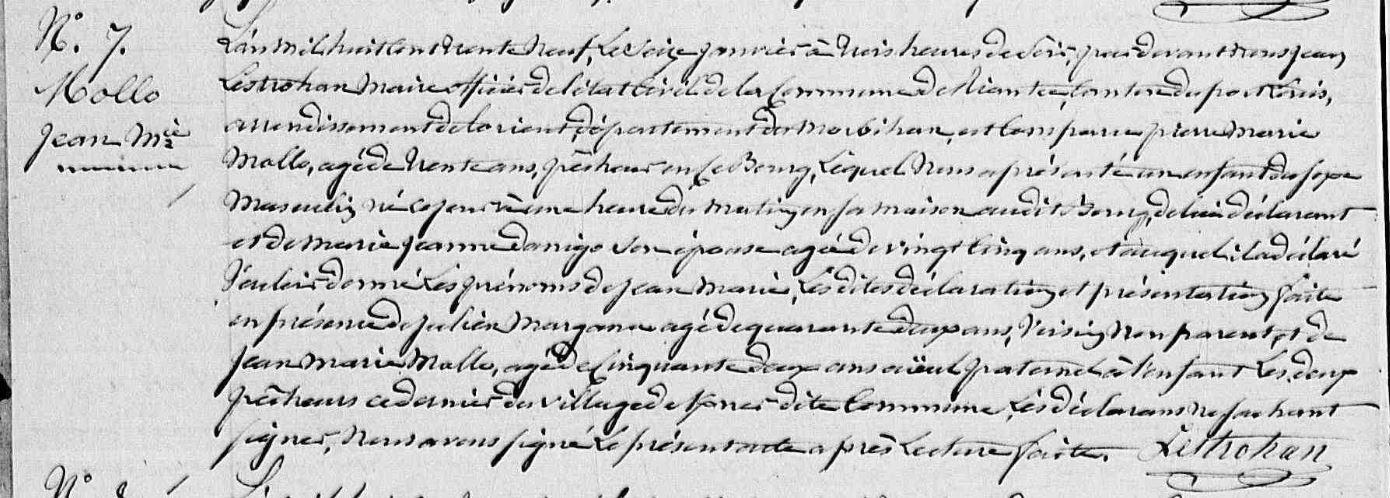 N° 7.
Mollo
Jean Mie
L'an mil huit cent trente neuf, Le seize janvier à trois heures de soir, par devant nous jean
Lestrohan Maire officier de l'état civil de la Commune de Riantec, Canton du port Louis,
arrondissement de Lorient, département du Morbihan, est Comparu pierre Marie
Mollo, agé de trente ans, pêcheur en Le Bourg, Lequel Nous a présenté un enfant du sexe
Masculin né ce jour à une heure du Matin, en sa maison audit Bourg, de lui déclarant
et de Marie jeanne danigo son épouse agée de vingt cinq ans, et auquel il a déclaré
Vouloir donné Les prénoms de jean Marie, Les dites déclaration et présentation faite
en présence de julien agé de quarante deux ans, Voisin Non parent, et de
jean Marie Mollo, agé de Cinquante deux ans aïeul paternel à l'enfant Les deux
pêcheurs ce dernier du village de dite Commune, Les déclarans Ne sachant
signer, Nous avons signé Le présent acte après Lecture faite. Lestrohan
N°